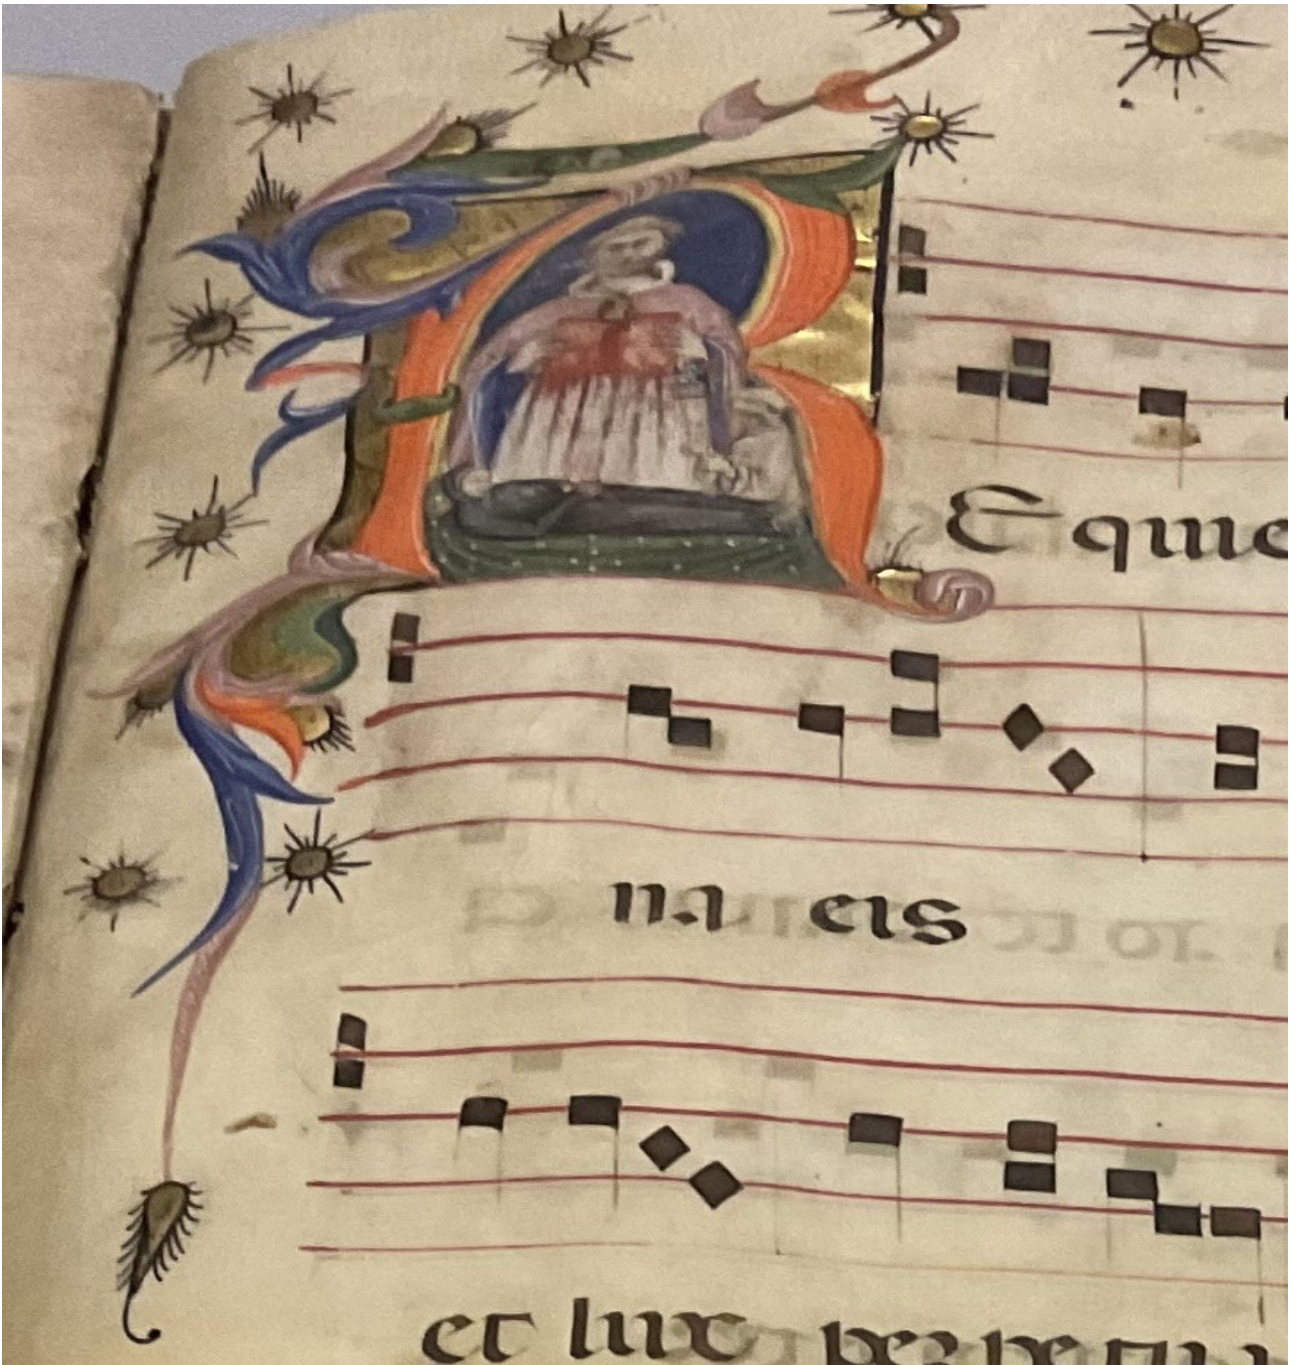 REquie
na eis
et lux perpetu